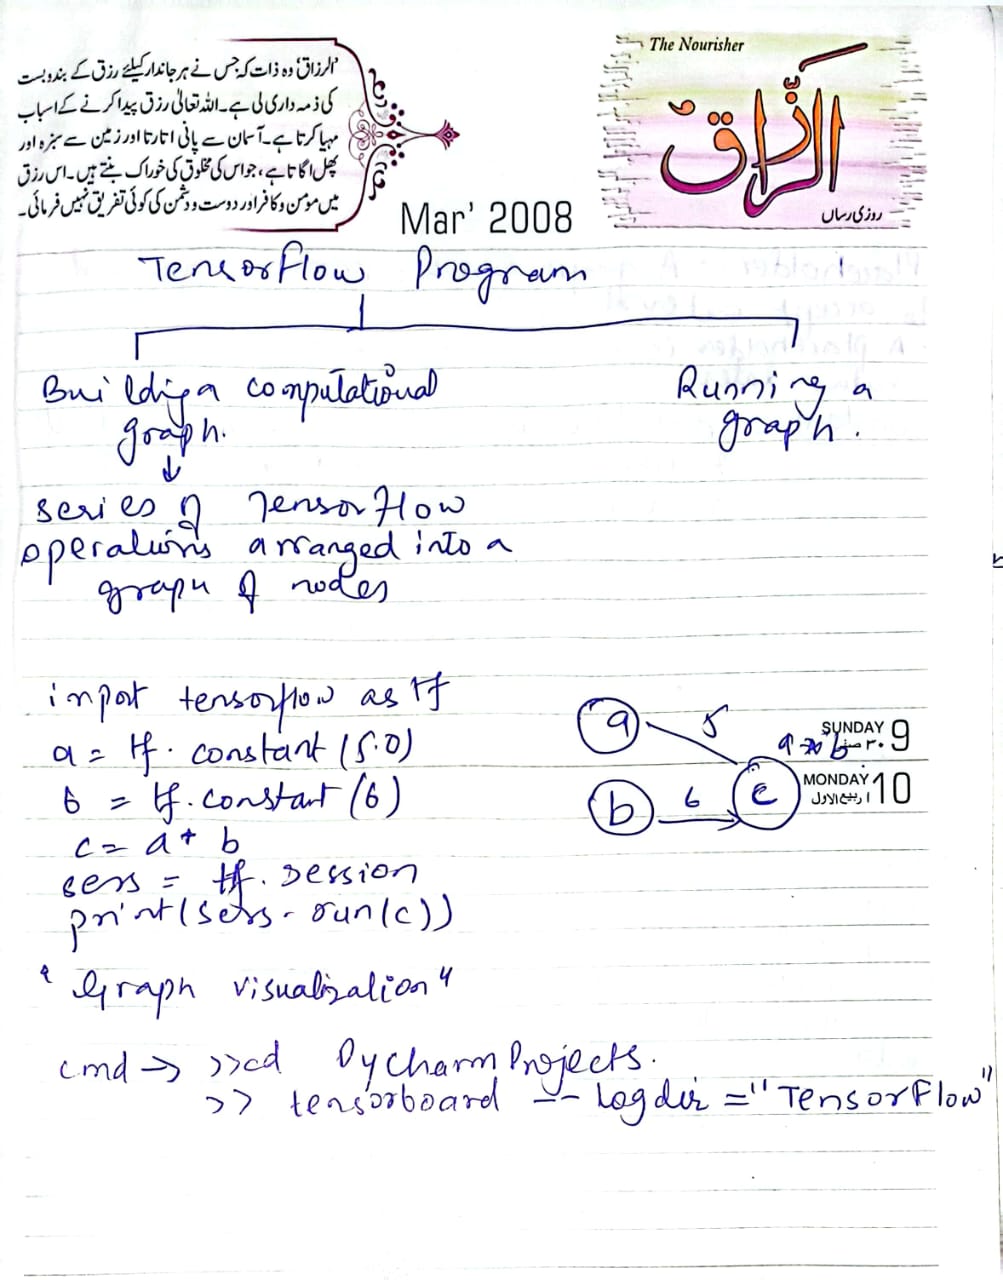 الرزاق وہ ذات کہ جس نے ہر جاندار کیلئے رزق کے بندوبست
کی ذمہ داری لی ہے۔ اللہ تعالیٰ رزق پیدا کرنے کے اسباب
مہیا کرتا ہے۔ آسمان سے پانی اتارتا اور زمین سے سبزہ اور
پھل اگاتا ہے، جو اس کی مخلوق کی خوراک بنتے ہیں۔ اس رزق
میں مومن و کافر اور دوست و دشمن کی کوئی تفریق نہیں فرمائی۔
The Nourisher
الرزاق
روزی رساں
Mar' 2008
TensorFlow Program
Building a computational
graph.
↓
series of TensorFlow
operations arranged into a
graph of nodes
Running a
graph.
import tensorflow as tf
a = tf. constant (5.0)
b = tf. constant (6)
c = a + b
sess = tf. session
print (sess. run (c))
a 5
b 6 c
SUNDAY 9
MONDAY 10
"Graph visualization"
cmd → >>cd PyCharmProjects.
>> tensorboard -- logdir = "TensorFlow"